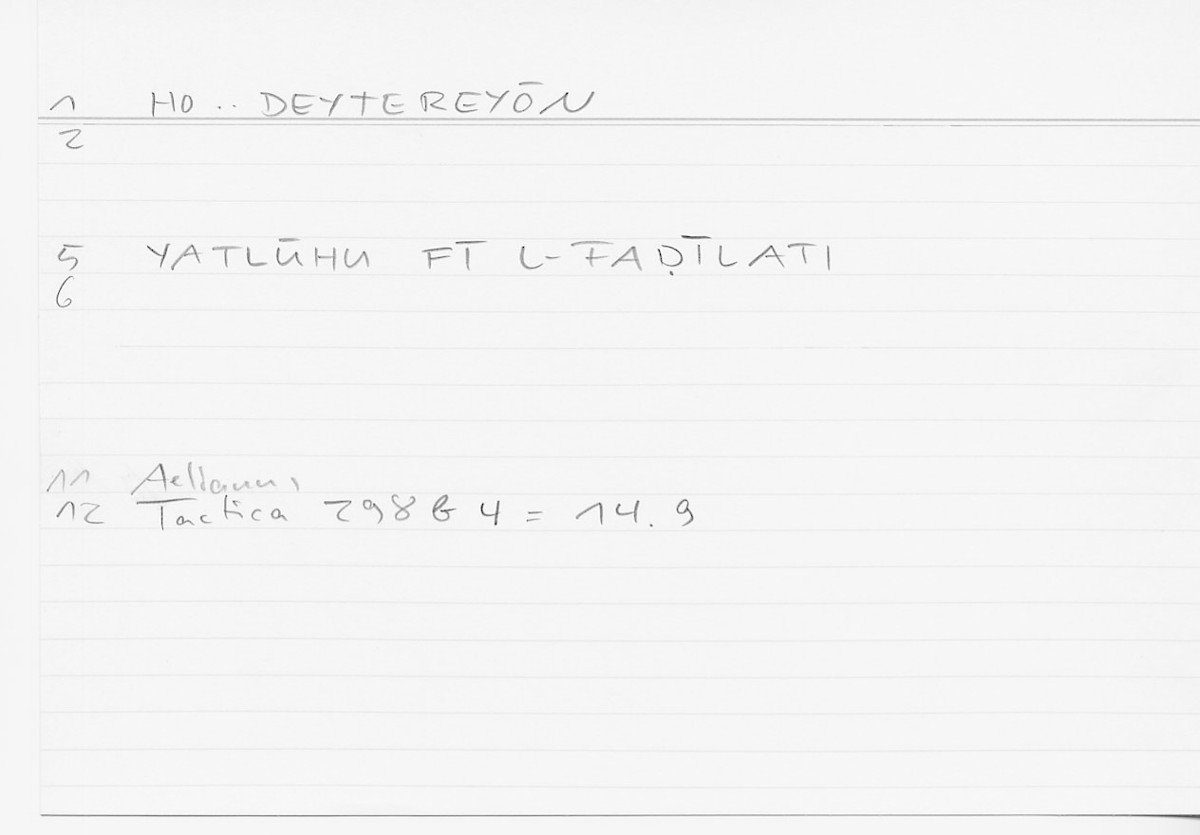 1 HO .. DEYTEREYŌN
2
5 YATLŪHU FĪ L-FAḌĪLATI
6
11 Aelianus,
12 Tactica 298 b 4 = 14.9